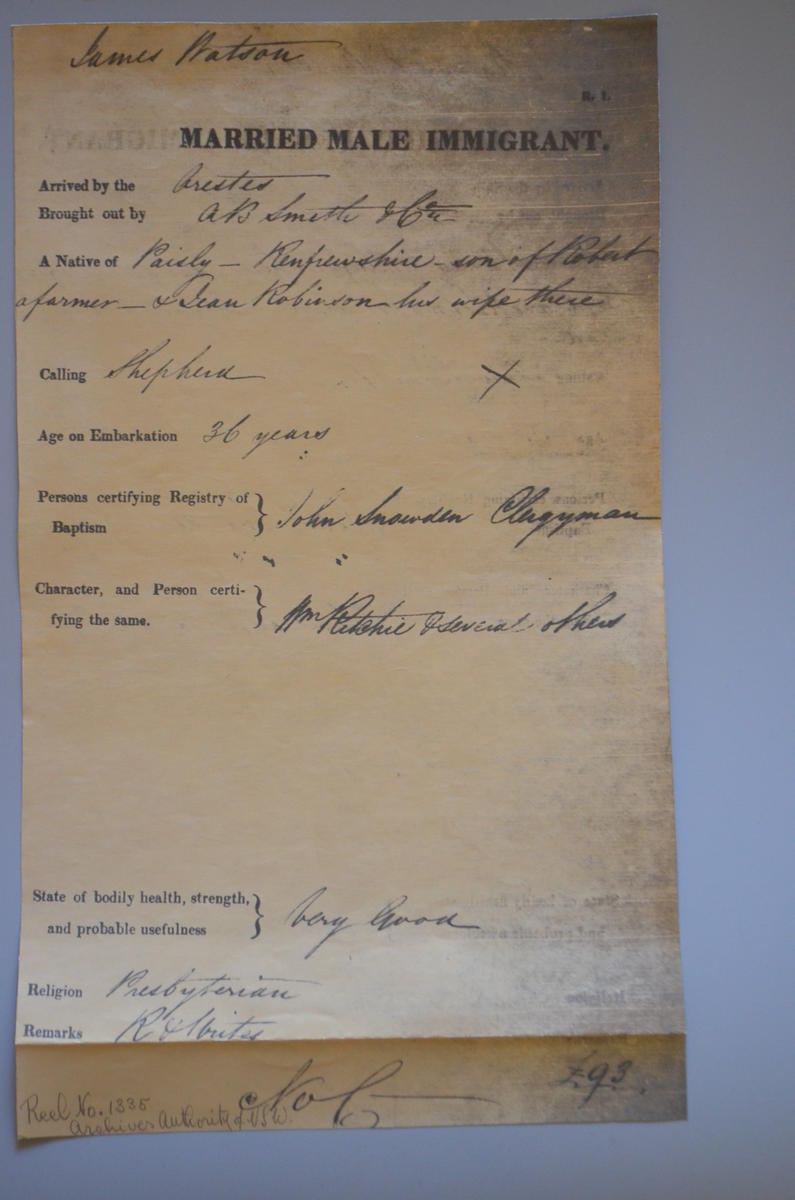 James Watson
R. 1.
MARRIED MALE IMMIGRANT.
Arrived by the Orestes
Brought out by AB Smith & Co
A Native of Paisly – Renfrewshire – son of Robert
a farmer – & Jean Robinson his wife there
Calling Shepherd X
Age on Embarkation 36 years
Persons certifying Registry of
Baptism } John Snowden Clergyman
Character, and Person certi-
fying the same. } Wm Ritchie & several others
State of bodily health, strength,
and probable usefulness } Very Good
Religion Presbyterian
Remarks R & Writes
93
No C
Reel No. 1335
Archives Authority of NSW.